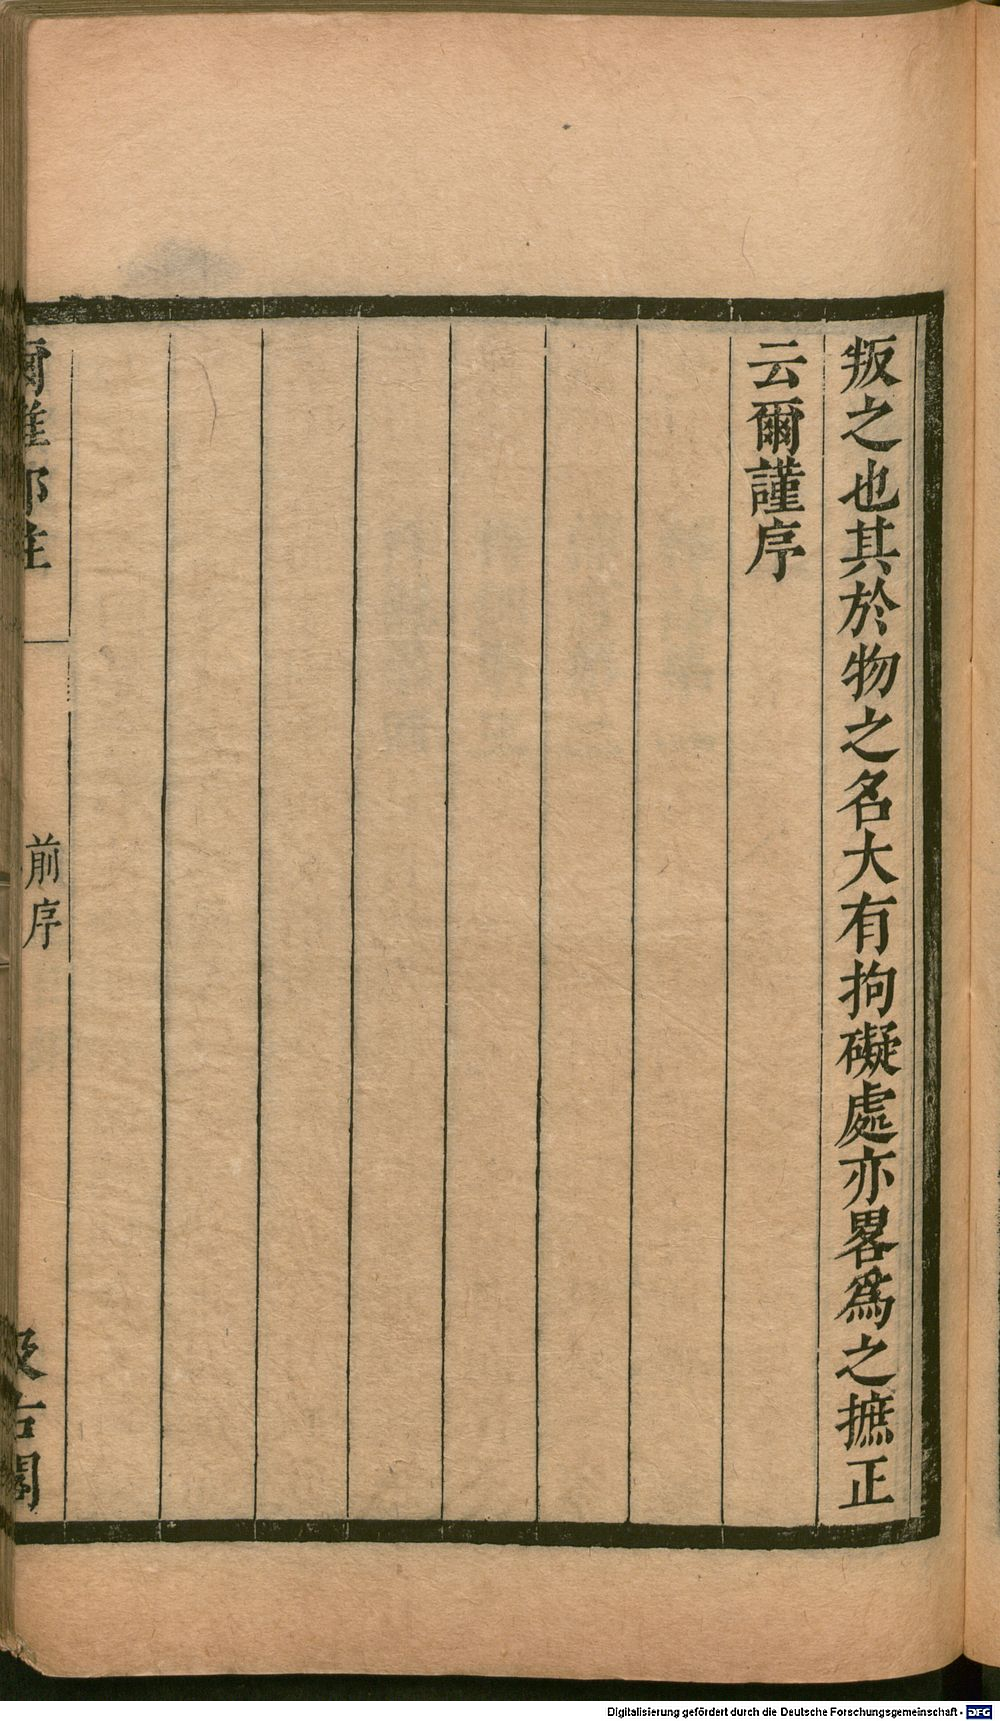 叛之也其於物之名大有拘礙處亦畧爲之摭正
云爾謹序
爾雅鄭註
前序
汲古閣
Digitalisierung gefördert durch die Deutsche Forschungsgemeinschaft - DFG